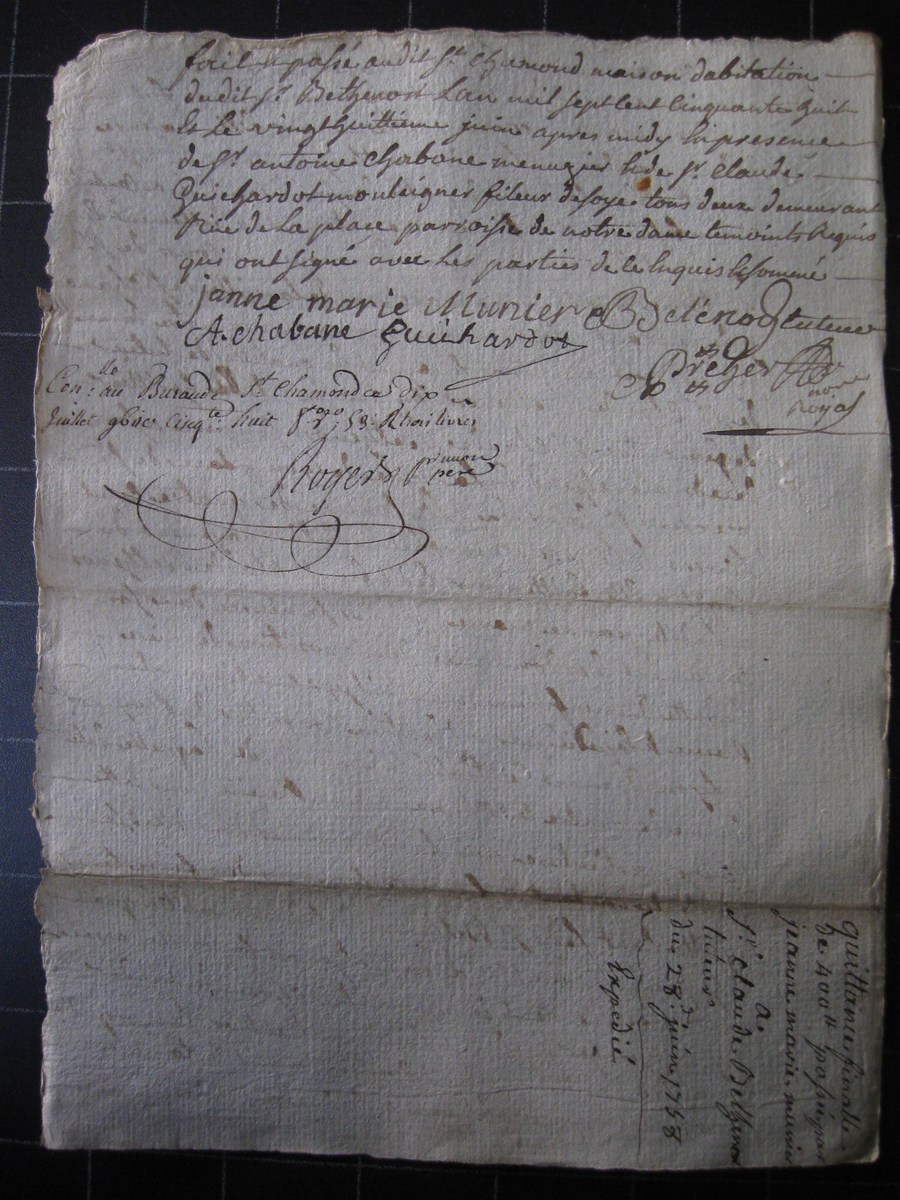 fait et passé audit St. Chamond maison dabitation
dudit Sr. Bethenod Lan mil sept Cent cinquante huit
Et Le vingthuittieme juin apres midy En presence
de Sr. antoine Chabane menuzier et de Sr. Claude
Guichardot mouleigner fileur de soye tous deux demeurant
Rue de La place parroisse de notre dame temoints Requis
qui ont signé avec Les parties de ce Enquis et sommé
janne marie Munier Betenod tuteur
A. Chabane Guichardot
Preher
nore
Royal
Con.lle au Bureau de St. Chamond ce dix
Juillet 9bisc cinq.te huit Rx trois livres
Roger pr mon
pere
quittance finalle
de 400tt passée par
jeanne marie munier
a
Sr. Claude Bethenod
tuteur
du 28e. juin 1758
Expedié